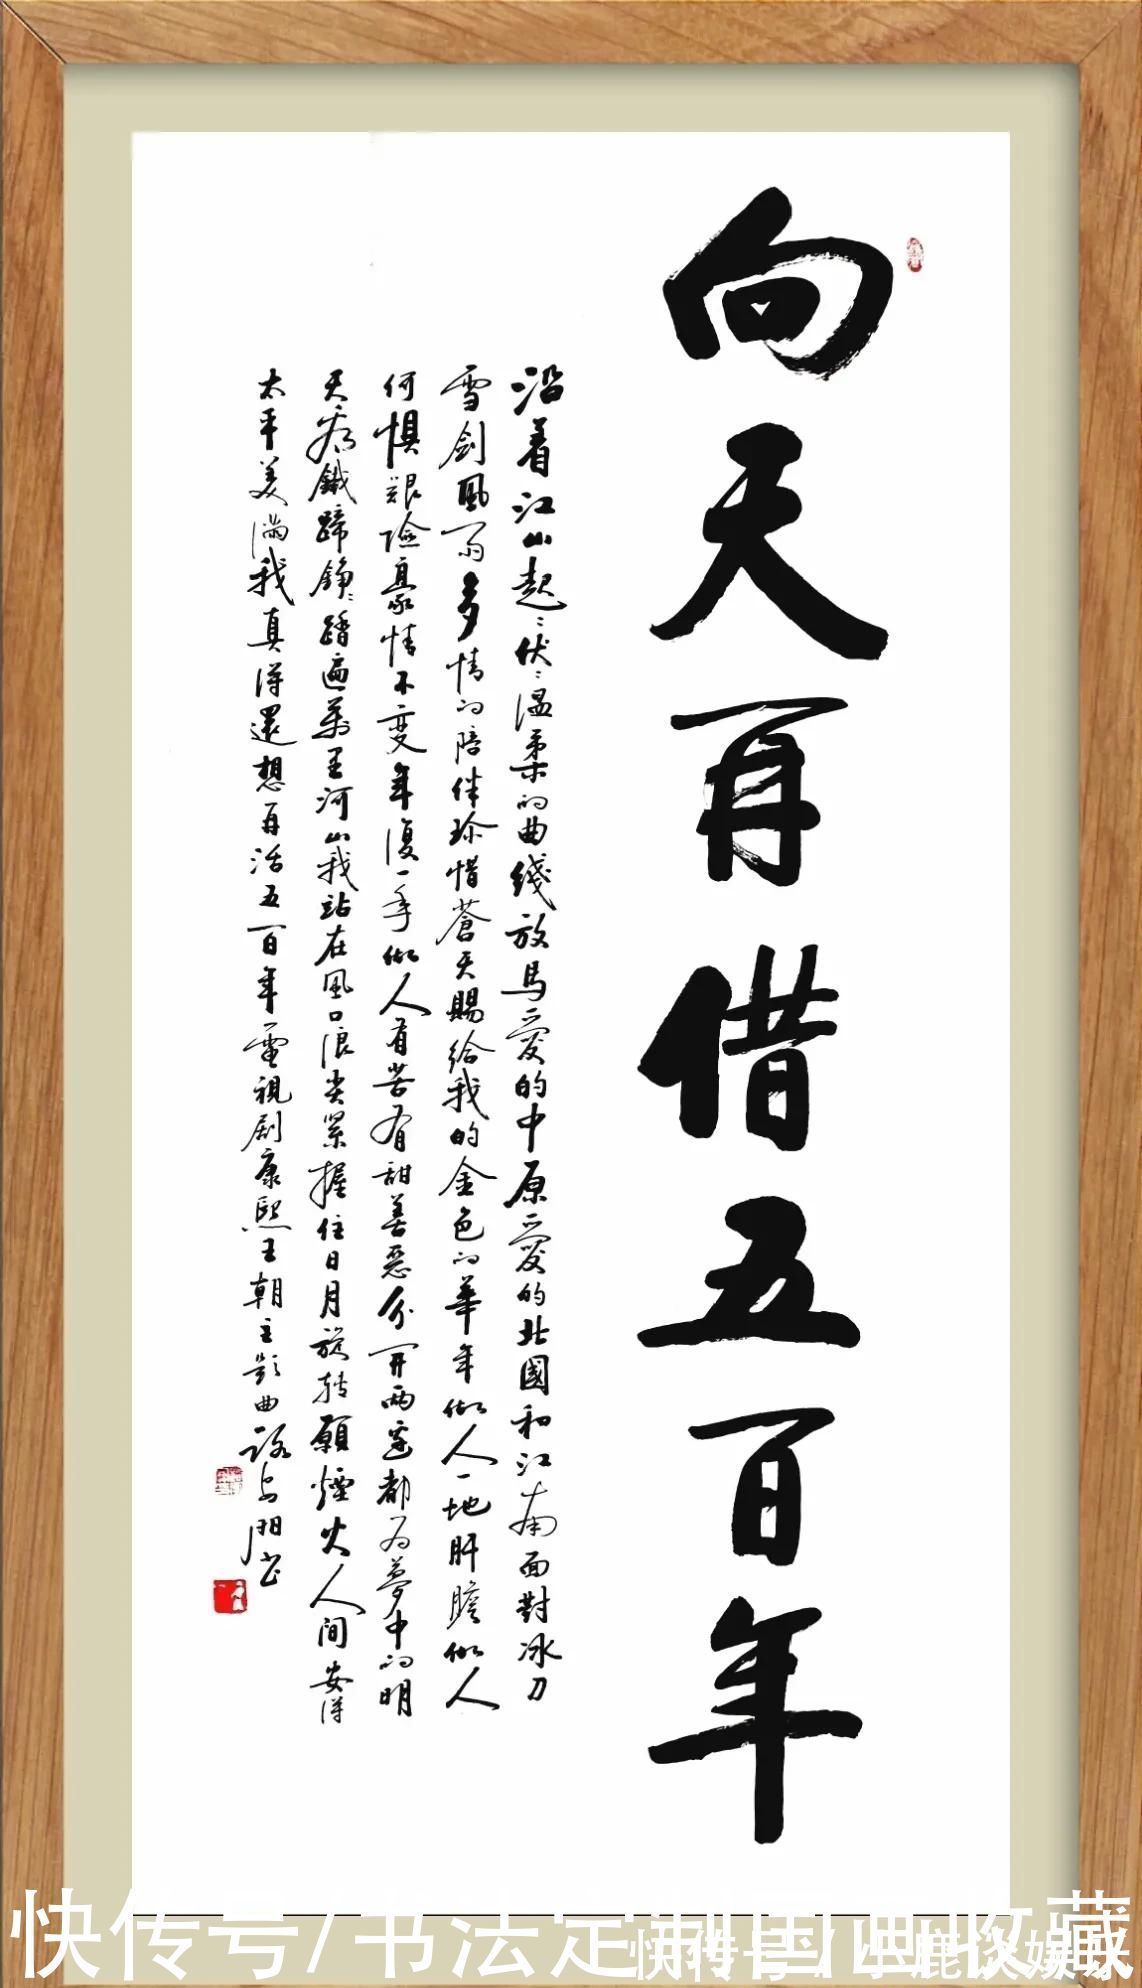 向天再借五百年
沿着江山起〻伏〻溫柔的曲綫放馬愛的中原愛的北國和江南面對冰刀
雪劍風雨多情的陪伴珍惜蒼天賜給我的金色的華年做人一地肝膽做人
何懼艱險豪情不變年復一年做人有苦有甜善惡分開兩邊都为夢中的明
天看鐵蹄錚〻踏遍萬里河山我站在風口浪尖緊握住日月旋轉願煙火人间安得
太平美滿我真得還想再活五百年電視劇康熙王朝主題曲
快传号/书法定制国画收藏